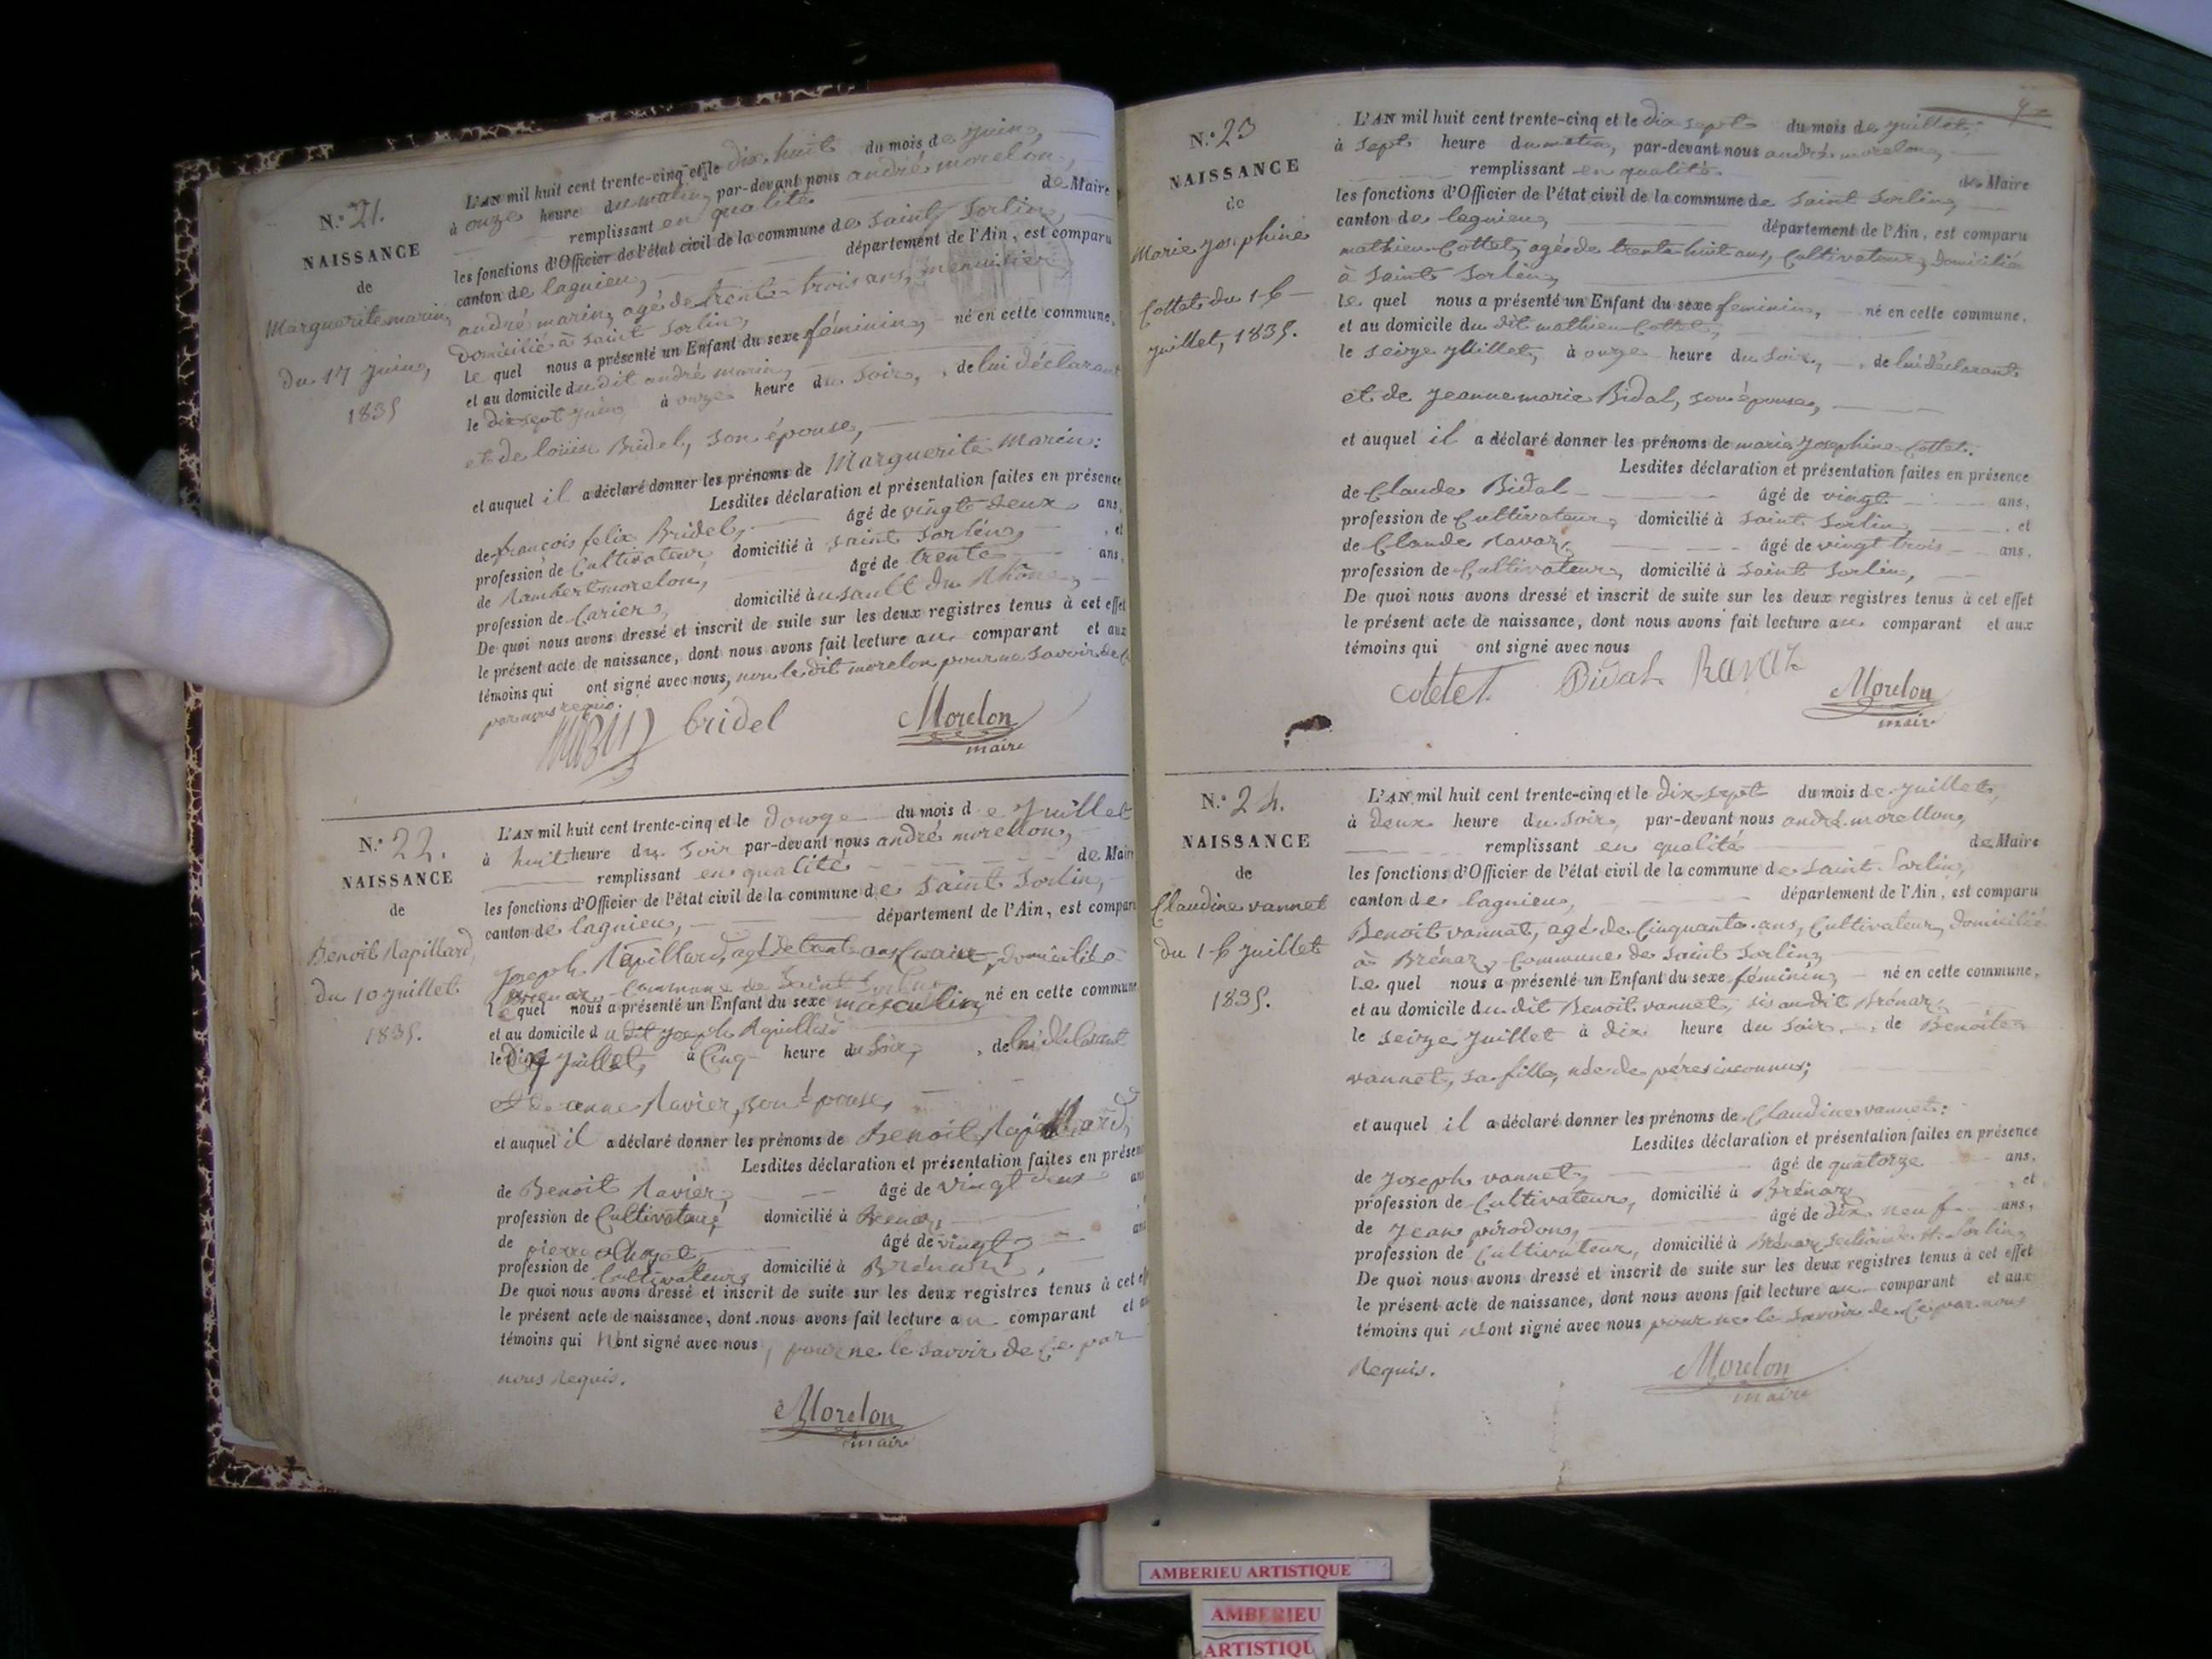 N.º 21.
NAISSANCE
de
Marguerite marin,
du 17 juin,
1835
L'AN mil huit cent trente-cinq et le dix huit du mois de juin,
à onze heure du matin, par-devant nous andré morelon,
remplissant en qualité de Maire
les fonctions d'Officier de l'état civil de la commune de saint Sorlin,
canton de lagnieu, département de l'Ain, est comparu
andré marin, agé de trente trois ans, menuisier
domicilié à saint Sorlin,
le quel nous a présenté un Enfant du sexe féminin, né en cette commune,
et au domicile du dit andré marin,
le dix sept juin à onze heure du soir, de lui déclarant
et de louise Bridel, son épouse,
et auquel il a déclaré donner les prénoms de Marguerite Marin:
Lesdites déclaration et présentation faites en présence
de françois felix Bridel, âgé de vingt deux ans,
profession de Cultivateur, domicilié à saint Sorlin, et
de Rambert morelon, âgé de trente ans,
profession de Carier, domicilié à u sault du Rhône,
De quoi nous avons dressé et inscrit de suite sur les deux registres tenus à cet effet
le présent acte de naissance, dont nous avons fait lecture au comparant et aux
témoins qui ont signé avec nous, non le dit morelon pour ne savoir de ce
par nous requis.
bridel Morelon
maire
N.º 22.
NAISSANCE
de
Benoit Rapillard,
du 10 juillet
1835.
L'AN mil huit cent trente-cinq et le douze du mois de Juillet
à huit heure du soir par-devant nous andré morellon,
remplissant en qualité de Maire
les fonctions d'Officier de l'état civil de la commune de saint Sorlin,
canton de lagnieu, département de l'Ain, est comparu
Joseph Rapillard, agé de trente ans, domicilié à
Brenaz, Commune de Saint Sorlin
le quel nous a présenté un Enfant du sexe masculin, né en cette commune
et au domicile du dit Joseph Rapillard
le Dix Juillet, à Cinq heure du Soir, de lui déclarant
Et de anne Ravier, son épouse,
et auquel il a déclaré donner les prénoms de Benoit Rapillard,
Lesdites déclaration et présentation faites en présence
de Benoit Ravier, âgé de vingt deux ans
profession de Cultivateur, domicilié à Brenaz,
de pierre âgé de vingt ans
profession de Cultivateur, domicilié à Brénaz,
De quoi nous avons dressé et inscrit de suite sur les deux registres tenus à cet effet
le présent acte de naissance, dont nous avons fait lecture au comparant et aux
témoins qui n'ont signé avec nous, pour ne le savoir de ce par
nous Requis.
Morelon
maire
N.º 23
NAISSANCE
de
Marie Josephine
Cottet du 16
juillet, 1835.
L'AN mil huit cent trente-cinq et le dix sept du mois de juillet,
à sept heure du matin, par-devant nous andré morelon,
remplissant en qualité de Maire
les fonctions d'Officier de l'état civil de la commune de Saint Sorlin,
canton de lagnieu, département de l'Ain, est comparu
mathieu Cottet, agé de trente huit ans, Cultivateur, domicilié
à Saint Sorlin,
le quel nous a présenté un Enfant du sexe feminin, né en cette commune,
et au domicile du dit mathieu Cottet,
le seize Juillet, à onze heure du soir, de lui déclarant
et de Jeanne marie Bidal, son épouse,
et auquel il a déclaré donner les prénoms de marie Josephine Cottet.
Lesdites déclaration et présentation faites en présence
de Claude Bidal âgé de vingt ans,
profession de Cultivateur, domicilié à Saint Sorlin, et
de Claude Ravaz, âgé de vingt trois ans,
profession de Cultivateur, domicilié à Saint Sorlin,
De quoi nous avons dressé et inscrit de suite sur les deux registres tenus à cet effet
le présent acte de naissance, dont nous avons fait lecture au comparant et aux
témoins qui ont signé avec nous
cotetet Bidal Ravaz Morelon
maire
N.º 24.
NAISSANCE
de
Claudine vannet
du 16 juillet
1835.
L'AN mil huit cent trente-cinq et le dix-sept du mois de juillet,
à deux heure du soir, par-devant nous andré morellon,
remplissant en qualité de Maire
les fonctions d'Officier de l'état civil de la commune de Saint Sorlin,
canton de lagnieu, département de l'Ain, est comparu
Benoit vannet, agé de Cinquante ans, Cultivateur, domicilié
à Brénaz, Commune de Saint Sorlin,
le quel nous a présenté un Enfant du sexe féminin, né en cette commune,
et au domicile du dit Benoit vannet, sis au dit Brénaz,
le seize juillet à dix heure du soir, de Benoite
vannet, sa fille, née de pères inconnus;
et auquel il a déclaré donner les prénoms de Claudine vannet:
Lesdites déclaration et présentation faites en présence
de Joseph vannet, âgé de quatorze ans,
profession de Cultivateur, domicilié à Brénaz, et
de Jean pirodon, âgé de dix neuf ans,
profession de Cultivateur, domicilié à Brénaz, section de St. Sorlin,
De quoi nous avons dressé et inscrit de suite sur les deux registres tenus à cet effet
le présent acte de naissance, dont nous avons fait lecture au comparant et aux
témoins qui n'ont signé avec nous pour ne le savoir de ce par nous
Requis.
Morelon
maire
AMBERIEU ARTISTIQUE
AMBERIEU
ARTISTIQU